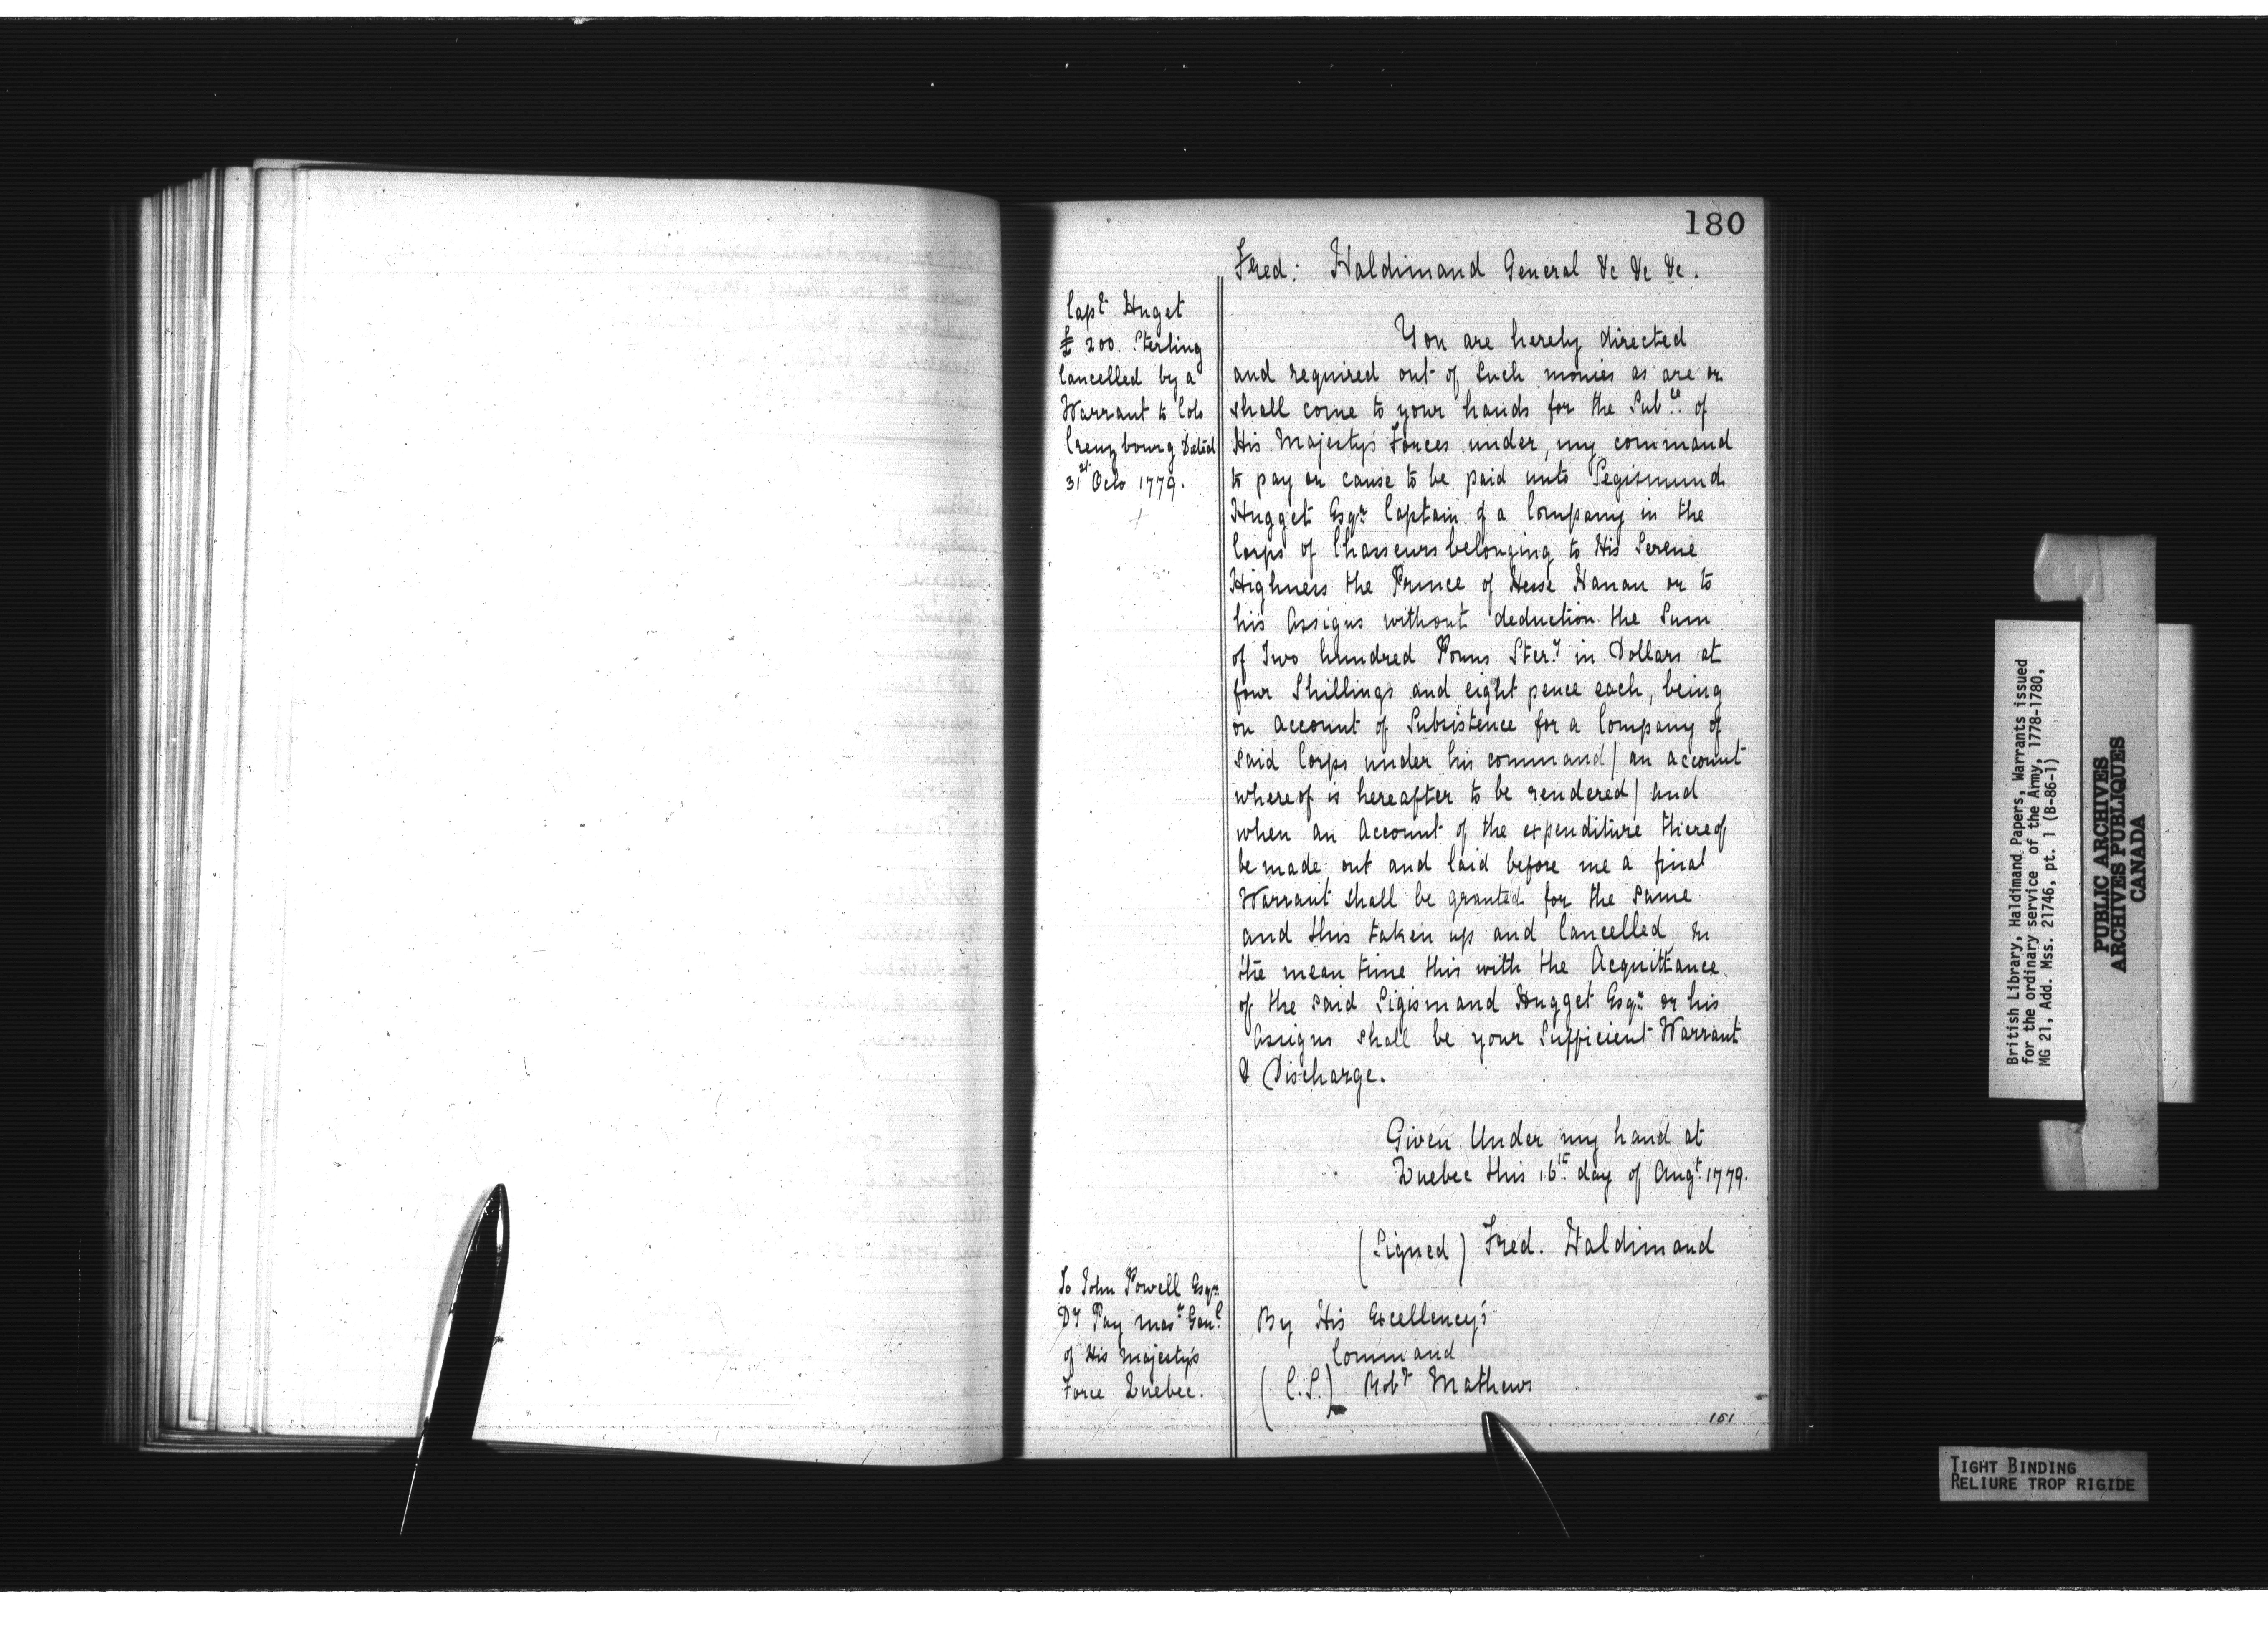 180
Fred: Haldimand General &c &c &c.
Capt Huget
£ 200. Sterling
Cancelled by a
Warrant to Colo
Creuzbourg Dated
31st Octo 1779.
You are hereby directed
and required out of such monies as are or
shall come to your hands for the Subce. of
His Majesty's Forces under my command
to pay or cause to be paid unto Segismund
Hugget Esqr. Captain of a Company in the
Corps of Chasseurs belonging to His Serene
Highness the Prince of Hesse Hanau or to
his Assigns without deduction the Sum
of Two hundred Pouns Ster.g in Dollars at
four Shillings and eight pence each, being
on account of Subsistence for a Company of
said Corps under his command / an account
whereof is hereafter to be rendered / and
when an Account of the expenditure thereof
be made out and laid before me a final
Warrant shall be granted for the same
and this taken up and Cancelled In
the mean time this with the Acquittance
of the said Sigismand Hugget Esqr. or his
Assigns shall be your Sufficient Warrant
& Discharge.
Given Under my hand at
Quebec this 16th. day of Augt. 1779.
(Signed) Fred. Haldimand
To John Powell Esqr.
Dy Pay masr. Genl.
of His Majesty's
Force Quebec.
By His Excellency's
Command
(C.S.) Robt Mathews
181
British Library, Haldimand Papers, Warrants issued
for the ordinary service of the Army, 1778-1780,
MG 21, Add. Mss. 21746, pt. 1 (B-86-1)
PUBLIC ARCHIVES
ARCHIVES PUBLIQUES
CANADA
TIGHT BINDING
RELIURE TROP RIGIDE